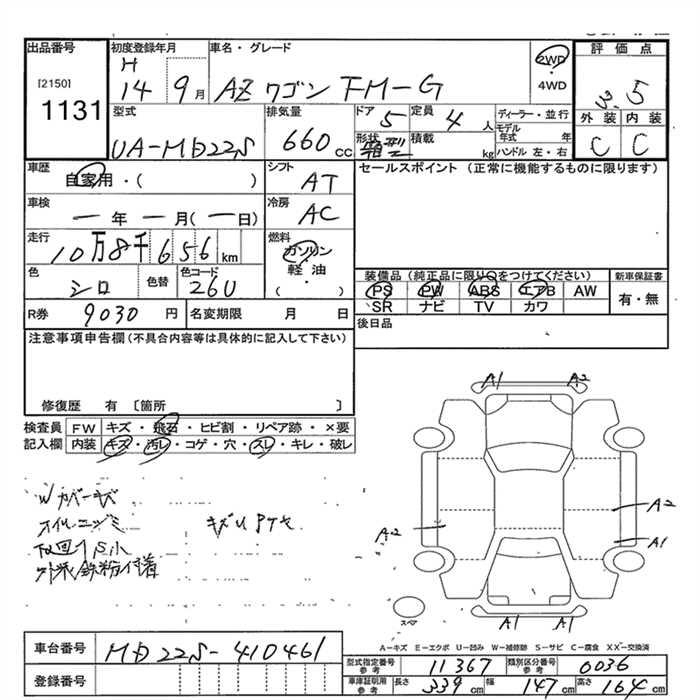 出品番号
[2150]
1131
初度登録年月
H
14 9月
車名・グレード
AZ ワゴン FM-G
2WD
4WD
評価点
3.5
外装 内装
C C
型式
UA-MD22S
排気量
660 cc
ドア 5
定員 4 人
形状 箱型
積載 kg
ディーラー・並行
モデル年式 年
ハンドル 左・右
車歴
自家用・( )
シフト
AT
セールスポイント (正常に機能するものに限ります)
車検
ー年ー月(ー日)
冷房
AC
走行
10万8千656 km
燃料
ガソリン
軽・油
( ・ )
色
シロ
色替
色コード
26U
装備品 (純正品に限り○をつけてください)
PS PW ABS エアB AW
SR ナビ TV カワ
新車保証書
有・無
R券 9030 円
名変期限 月 日
後日品
注意事項申告欄 (不具合内容等は具体的に記入して下さい)
修復歴 有 〔箇所 〕
検査員
記入欄
FW キズ・飛石・ヒビ割・リペア跡・×要
内装 キズ・汚レ・コゲ・穴・スレ・キレ・破レ
Wカバーキズ
オイルニジミ
下回りS小
外装鉄粉付着
A1 A2
A2
A2
A1
A1 A1
スペア
A-キズ E-エクボ U-凹み W-補修跡 S-サビ C-腐食 XX-交換済
車台番号 MD22S-410461
登録番号
型式指定番号 参考 11367
類別区分番号 参考 0036
車庫証明用 参考 長さ 339 cm 幅 147 cm 高さ 164 cm